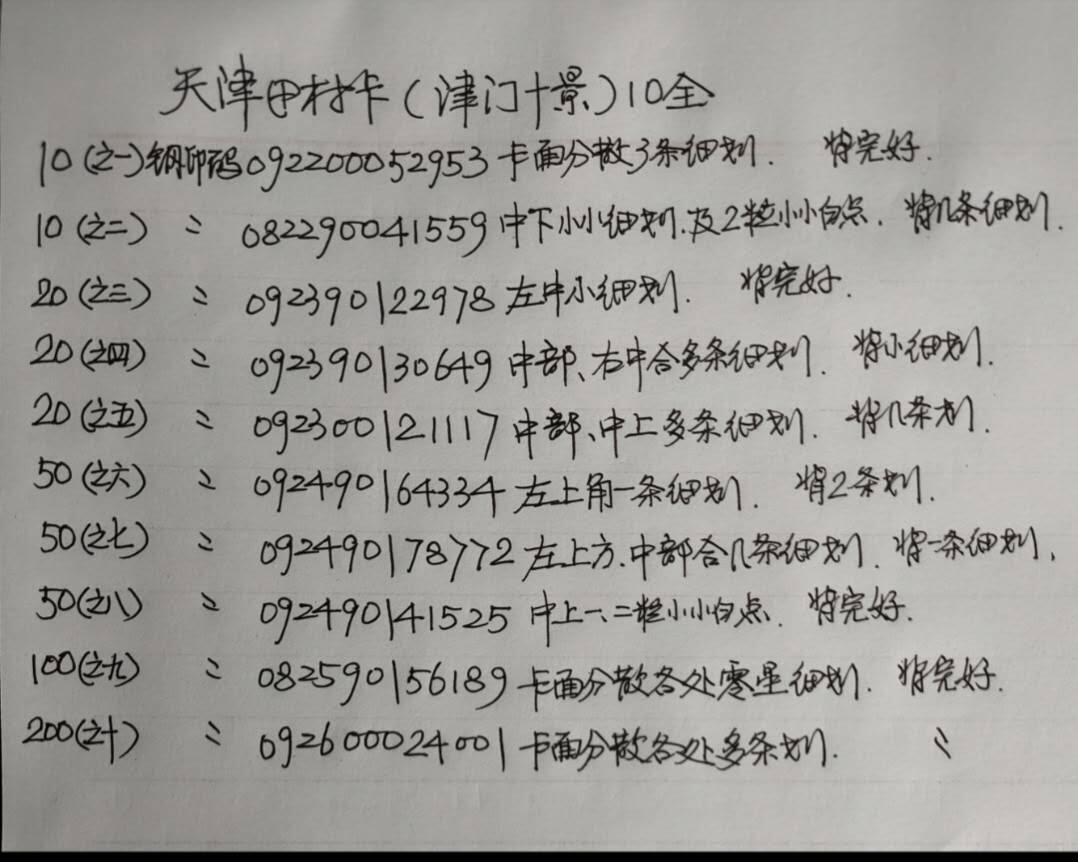 天津田村卡（津门十景）10全
10（之一）钢印码092200052953卡面分散3条细划. 背完好.
10（之二） 〃 082290041559中下小小细划.及2粒小小白点. 背几条细划.
20（之三） 〃 092390122978左中小细划. 背完好.
20（之四） 〃 092390130649中部、右中合多条细划. 背小细划.
20（之五） 〃 092300121117中部、中上多条细划. 背几条划.
50（之六） 〃 092490164334左上角一条细划. 背2条划.
50（之七） 〃 092490178772左上方.中部合几条细划. 背一条细划.
50（之八） 〃 092490141525中上一、二粒小小白点. 背完好.
100（之九） 〃 082590156189卡面分散各处零星细划. 背完好.
200（之十） 〃 092600024001卡面分散各处多条划. 〃